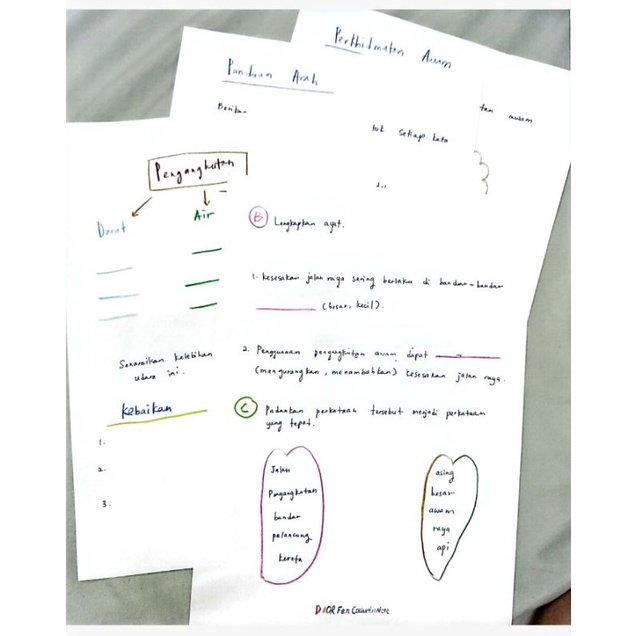 Perkhidmatan Awam
Panduan Arah
awam
Berikan
tuk setiap kata
Pengangkutan
Darat
Air
B Lengkapkan ayat.
1. Kesesakan jalan raya sering berlaku di bandar-bandar
(besar, kecil).
2. Penggunaan pengangkutan awam dapat
(mengurangkan, menambahkan) kesesakan jalan raya.
Senaraikan kelebihan
udara ini.
Kebaikan
1.
2.
3.
C Padankan perkataan tersebut menjadi perkataan
yang tepat.
Jalan
Pengangkutan
bandar
pelancong
kereta
asing
besar
awam
raya
api